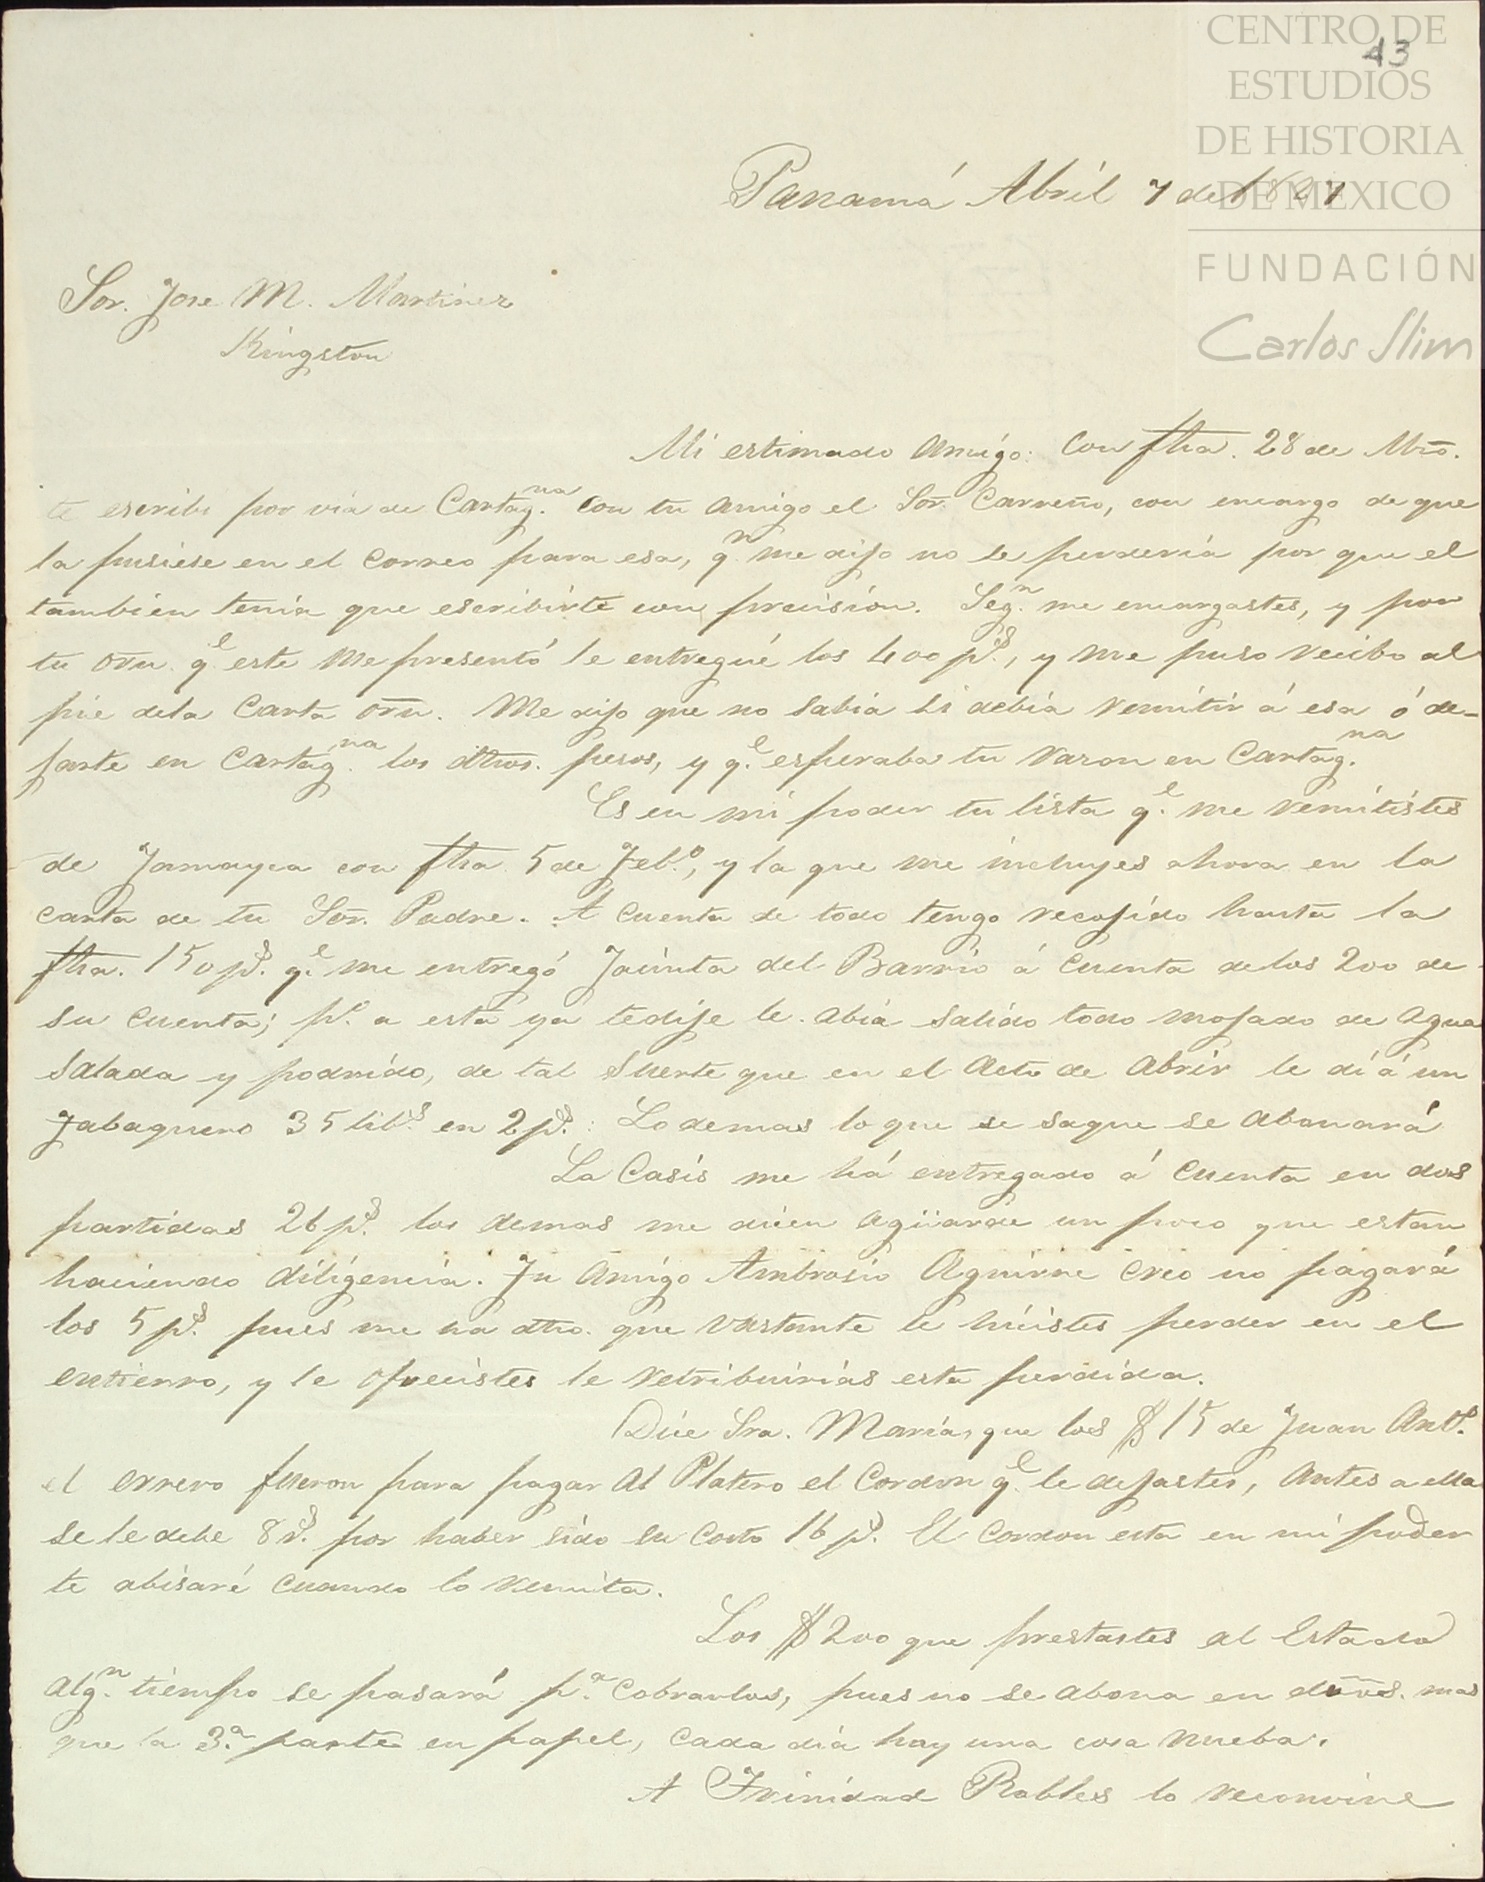 CENTRO DE
ESTUDIOS
DE HISTORIA
DE MEXICO
FUNDACIÓN
Carlos Slim
43
Panamá Abril 7 de 1827
Sor. Jose M. Martinez
Kingston
Mi estimado Amigo: Con fha. 28 de Mzo.
te escribi por via de Cartagna. con tu amigo el Sor. Carreño, con encargo de que
la pusiese en el correo para esa, qn. me dijo no se perderia por que el
tambien tenia que escribirte con precision. Segn. me encargastes, y por
tu orn. qe. este me presentó le entregué los 400 ps., y me puso recibo al
pie dela Carta orn. Me dijo que no sabia si debia remitir á esa ó de-
jarte en Cartagna. los dhos. pesos, y qe. esperaba tu razon en Cartagna.
Es en mi poder tu lista qe. me remitistes
de Jamayca con fha 5 de Febo., y la que me incluyes ahora en la
carta de tu Sor. Padre. A cuenta de todo tengo recojido hasta la
fha. 150 ps. qe. me entregó Jacinta del Barrio á cuenta delos 200 de
su cuenta; po. a esta ya tedije le abia salido todo mojado de agua
salada y podrido, de tal suerte que en el acto de abrir le dí á un
Jabaquero 35 libs. en 2 ps.: Lo demas lo que se saque se abonará
La Casís me há entregado á cuenta en dos
partidas 26 ps. los demas me dicen agüarde un poco que estan
haciendo diligencia. Tu Amigo Ambrosio Aguirre creo no pagará
los 5 ps. pues me ha dho. que vastante le hicistes perder en el
entierro, y le ofrecistes le retribuirias esta perdida.
Dice Sra. Maria, que los $ 15 de Juan Anto.
el errero fueron para pagar al Platero el Cordon qe. le dejastes, antes a ella
se le debe 8 rs. por haber sido su costo 16 ps. El cordon esta en mi poder
te abisaré cuando lo remita.
Los $ 200 que prestastes al Estado
algn. tiempo se pasará pa. cobrarlos, pues no se abona en dros. mas
que la 3.a parte en papel, cada dia hay una cosa nueba.
A Trinidad Robles lo reconvine